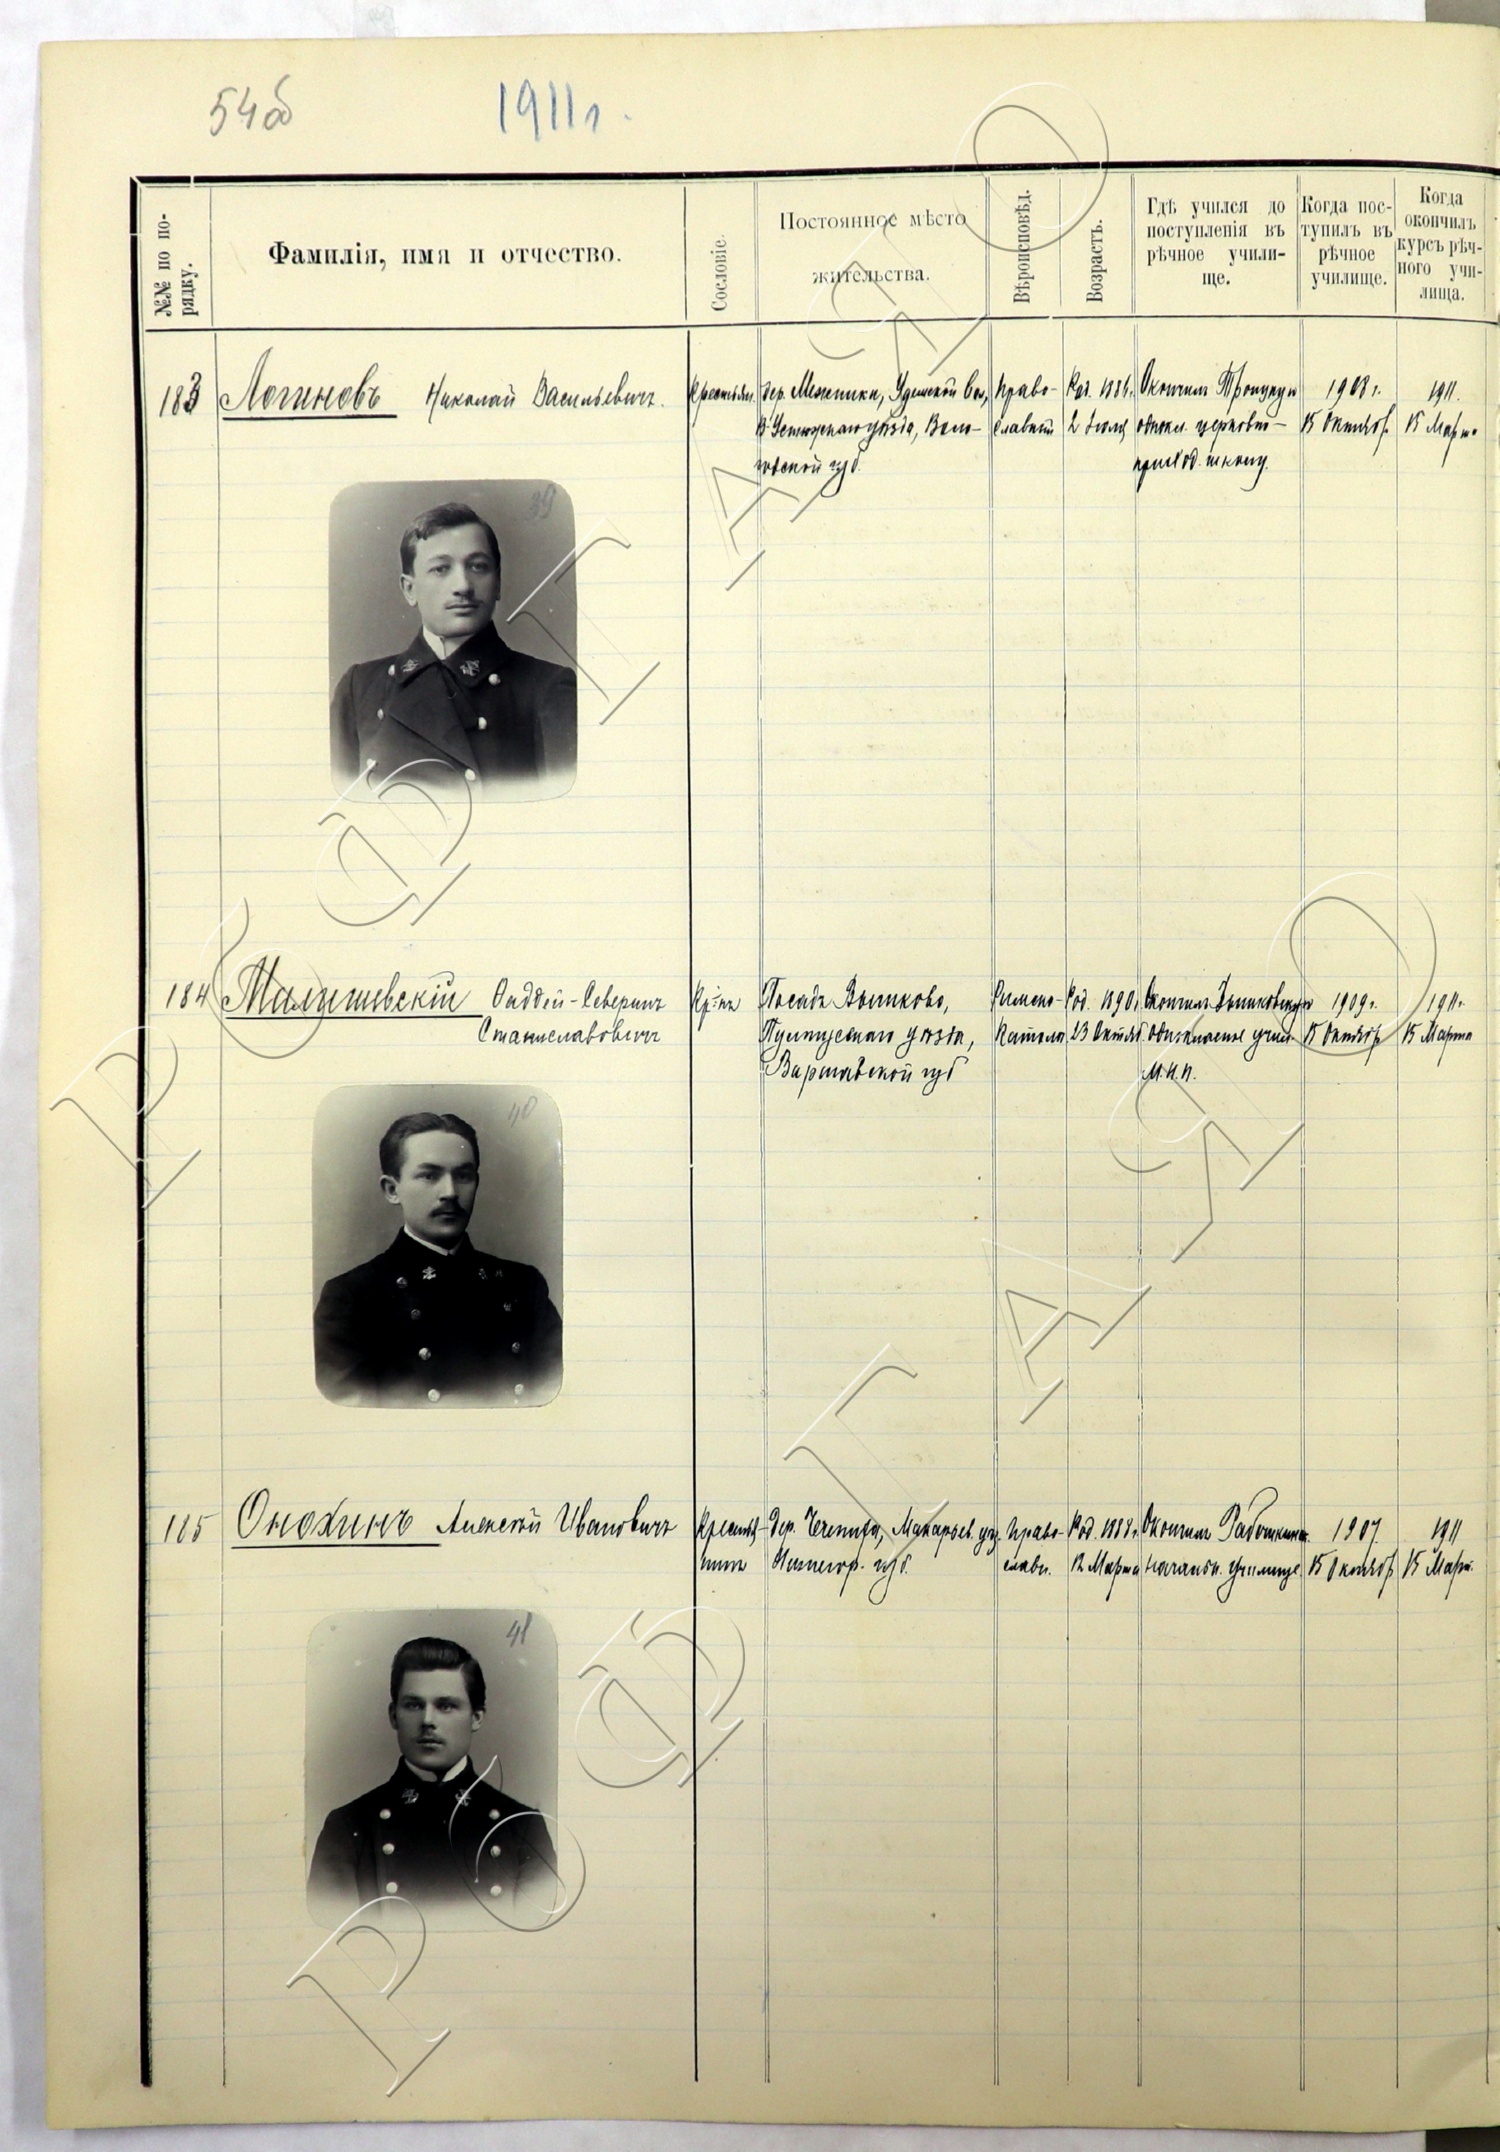 54об
1911г.
№№ по по-
рядку.
Фамилія, имя и отчество.
Сословіе.
Постоянное мѣсто
жительства.
Вѣроисповѣд.
Возрастъ.
Гдѣ учился до
поступленія въ
рѣчное учили-
ще.
Когда пос-
тупилъ въ
рѣчное
училище.
Когда
окончилъ
курсъ рѣч-
ного учи-
лища.
183
Логиновъ Николай Васильевичъ.
Крестьян.
дер. Мележики, Удимской вол,
В Устюжскаго уѣзда, Воло-
годской губ.
Право-
славный
Род. 1886г.
2 Июля
Окончилъ Троицкую
однокл. церковно-
приход. школу.
1908 г.
15 Октябр.
1911.
15 Марта
39
184
Малишевскій Фаддей-Северинъ
Станиславовичъ
Кр-нъ
Посадъ Вышково,
Пултусскаго уѣзда,
Варшавской губ
Римско-
Католи
Род. 1890г.
23 Октяб.
Окончилъ Вышковское
одноклассное учил.
М.Н.П.
1909г.
15 Октябр
1911г.
15 Марта
40
185
Онохинъ Алексѣй Ивановичъ
Крестья-
нинъ
Дер. Макарьев. уѣз.
Нижегор. губ.
Право-
славн.
Род. 1888г.
12 Марта
Окончилъ
начальн. училище
1907
15 Октябр
1911
15 Март.
41
РФ ГАЯО
РФ ГАЯО